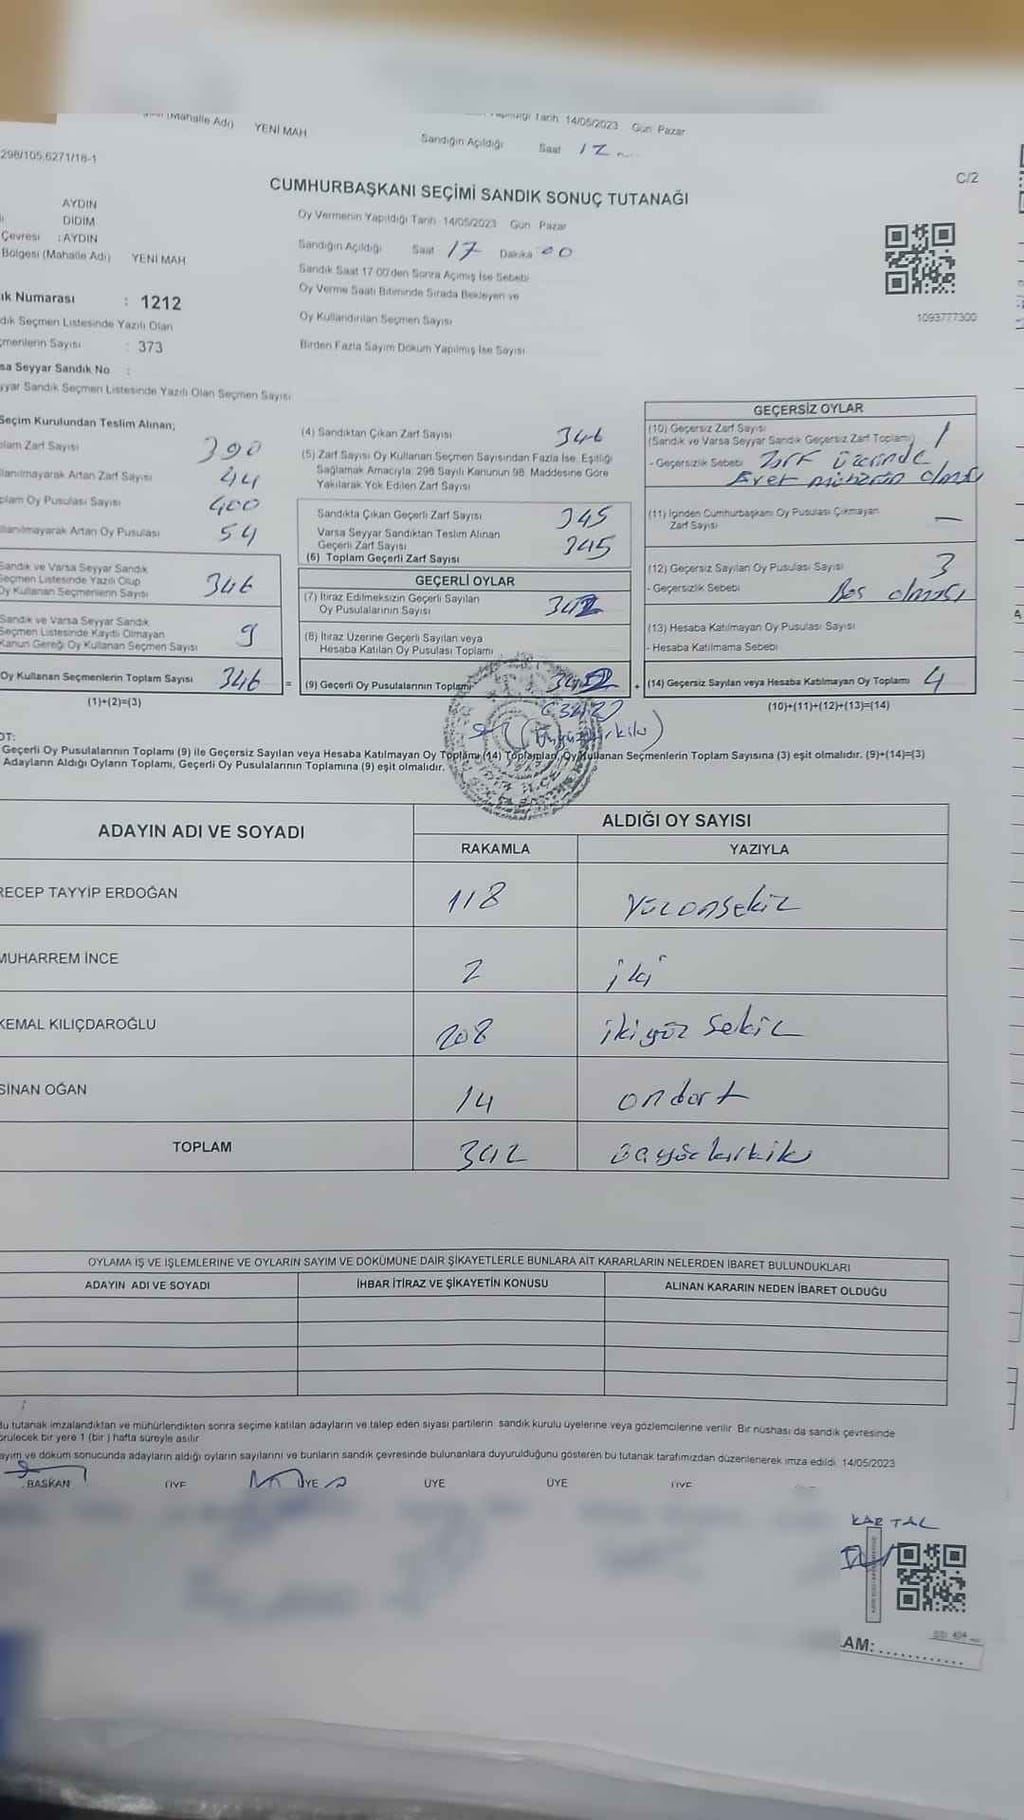 (Mahalle Adı) YENİ MAH
Tarih 14/05/2023 Gün Pazar
Sandığın Açıldığı Saat 17
298/105,6271/18-1
C/2
CUMHURBAŞKANI SEÇİMİ SANDIK SONUÇ TUTANAĞI
AYDIN
DİDİM
Çevresi : AYDIN
Bölgesi (Mahalle Adı) YENİ MAH
Oy Vermenin Yapıldığı Tarih 14/05/2023 Gün Pazar
Sandığın Açıldığı Saat 17 Dakika 00
Sandık Saat 17 00'den Sonra Açımış İse Sebebi
Oy Verme Saati Bitiminde Sırada Bekleyen ve
Oy Kullandırılan Seçmen Sayısı
Birden Fazla Sayım Döküm Yapılmış İse Sayısı
1093777300
ık Numarası : 1212
dık Seçmen Listesinde Yazılı Olan
çmenlerin Sayısı : 373
sa Seyyar Sandık No :
yyar Sandık Seçmen Listesinde Yazılı Olan Seçmen Sayısı
Seçim Kurulundan Teslim Alınan;
plam Zarf Sayısı 390
llanılmayarak Artan Zarf Sayısı 44
plam Oy Pusulası Sayısı 400
llanılmayarak Artan Oy Pusulası 54
Sandık ve Varsa Seyyar Sandık
Seçmen Listesinde Yazılı Olup
Oy Kullanan Seçmenlerin Sayısı 346
Sandık ve Varsa Seyyar Sandık
Seçmen Listesinde Kayıtlı Olmayan
Kanun Gereği Oy Kullanan Seçmen Sayısı 9
Oy Kullanan Seçmenlerin Toplam Sayısı 346
(1)+(2)=(3)
(4) Sandıktan Çıkan Zarf Sayısı 346
(5) Zarf Sayısı Oy Kullanan Seçmen Sayısından Fazla İse, Eşitliği
Sağlamak Amacıyla, 298 Sayılı Kanunun 98. Maddesine Göre
Yakılarak Yok Edilen Zarf Sayısı
Sandıkta Çıkan Geçerli Zarf Sayısı 345
Varsa Seyyar Sandıktan Teslim Alınan
Geçerli Zarf Sayısı 345
(6) Toplam Geçerli Zarf Sayısı
GEÇERLİ OYLAR
(7) İtiraz Edilmeksizin Geçerli Sayılan
Oy Pusulalarının Sayısı 342
(8) İtiraz Üzerine Geçerli Sayılan veya
Hesaba Katılan Oy Pusulası Toplamı
=
(9) Geçerli Oy Pusulalarının Toplamı
(342)
GEÇERSİZ OYLAR
(10) Geçersiz Zarf Sayısı
(Sandık ve Varsa Seyyar Sandık Geçersiz Zarf Toplamı) 1
- Geçersizlik Sebebi Zarf üzerinde
Evet mührünün olması
(11) İçinden Cumhurbaşkanı Oy Pusulası Çıkmayan
Zarf Sayısı —
(12) Geçersiz Sayılan Oy Pusulası Sayısı 3
- Geçersizlik Sebebi Boş olması
(13) Hesaba Katılmayan Oy Pusulası Sayısı
- Hesaba Katılmama Sebebi
+ (14) Geçersiz Sayılan veya Hesaba Katılmayan Oy Toplamı 4
(10)+(11)+(12)+(13)=(14)
OT:
Geçerli Oy Pusulalarının Toplamı (9) ile Geçersiz Sayılan veya Hesaba Katılmayan Oy Toplamı (14) Toplamları, Oy Kullanan Seçmenlerin Toplam Sayısına (3) eşit olmalıdır. (9)+(14)=(3)
Adayların Aldığı Oyların Toplamı, Geçerli Oy Pusulalarının Toplamına (9) eşit olmalıdır.
ADAYIN ADI VE SOYADI ALDIĞI OY SAYISI
RAKAMLA YAZIYLA
RECEP TAYYİP ERDOĞAN 118 Yüzonsekiz
MUHARREM İNCE 2 iki
KEMAL KILIÇDAROĞLU 208 ikiyüz sekiz
SİNAN OĞAN 14 ondört
TOPLAM 342 üçyüzkırkiki
OYLAMA İŞ VE İŞLEMLERİNE VE OYLARIN SAYIM VE DÖKÜMÜNE DAİR ŞİKAYETLERLE BUNLARA AİT KARARLARIN NELERDEN İBARET BULUNDUKLARI
ADAYIN ADI VE SOYADI İHBAR İTİRAZ VE ŞİKAYETİN KONUSU ALINAN KARARIN NEDEN İBARET OLDUĞU
Bu tutanak imzalandıktan ve mühürlendikten sonra seçime katılan adayların ve talep eden siyasi partilerin sandık kurulu üyelerine veya gözlemcilerine verilir. Bir nüshası da sandık çevresinde
örülecek bir yere 1 (bir) hafta süreyle asılır
ayım ve döküm sonucunda adayların aldığı oyların sayılarını ve bunların sandık çevresinde bulunanlara duyurulduğunu gösteren bu tutanak tarafımızdan düzenlenerek imza edildi. 14/05/2023
BAŞKAN ÜYE ÜYE ÜYE ÜYE ÜYE
KARTAL
AM:............